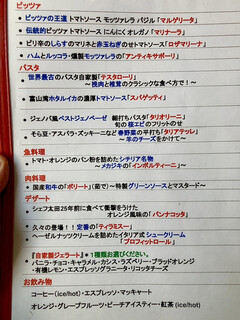 ピッツァ
・ピッツァの王道 トマトソース モッツァレラ バジル「マルゲリータ」
・伝統的ピッツァ トマトソース にんにく オレガノ「マリナーラ」
・ピリ辛のしらすのマリネと赤玉ねぎのせトマトソース「ロザマリーナ」
・ハムとルッコラ・燻製モッツァレラの「アンティキサポーリ」
パスタ
・世界最古のパスタ自家製「テスタローリ」
～挽肉と椎茸のクラシックな食べ方で！～
・富山湾ホタルイカの濃厚トマトソース「スパゲッティ」
・ジェノバ風ペストジェノベーゼ 細打ちパスタ「タリオリーニ」
旬の桜エビのフリットのせ
・そら豆・アスパラ・ズッキーニなど春野菜の平打ち「タリアテッレ」
～羊のチーズをかけて～
魚料理
・トマト・オレンジのパン粉を詰めたシチリア名物
～メカジキの「インボルティーニ」～
肉料理
・国産和牛の「ボリート」(茹で)～特製グリーンソースとマスタード～
デザート
・シェフ太田25年前に食べて衝撃をうけた
オレンジ風味の「パンナコッタ」
・久々の登場！！定番の「ティラミスー」
・ヘーゼルナッツクリームを詰めたイタリア式シュークリーム
「プロフィットロール」
『自家製ジェラート』※1種類お選びください。
・バニラ・チョコ・キャラメル・カシス・ラズベリー・ブラッドオレンジ
・有機レモン・エスプレッソグラニータ・リコッタチーズ
お飲み物
コーヒー(ice/hot)・エスプレッソ・マッキャート
オレンジ・グレープフルーツ・ピーチアイスティー・紅茶 (ice/hot)